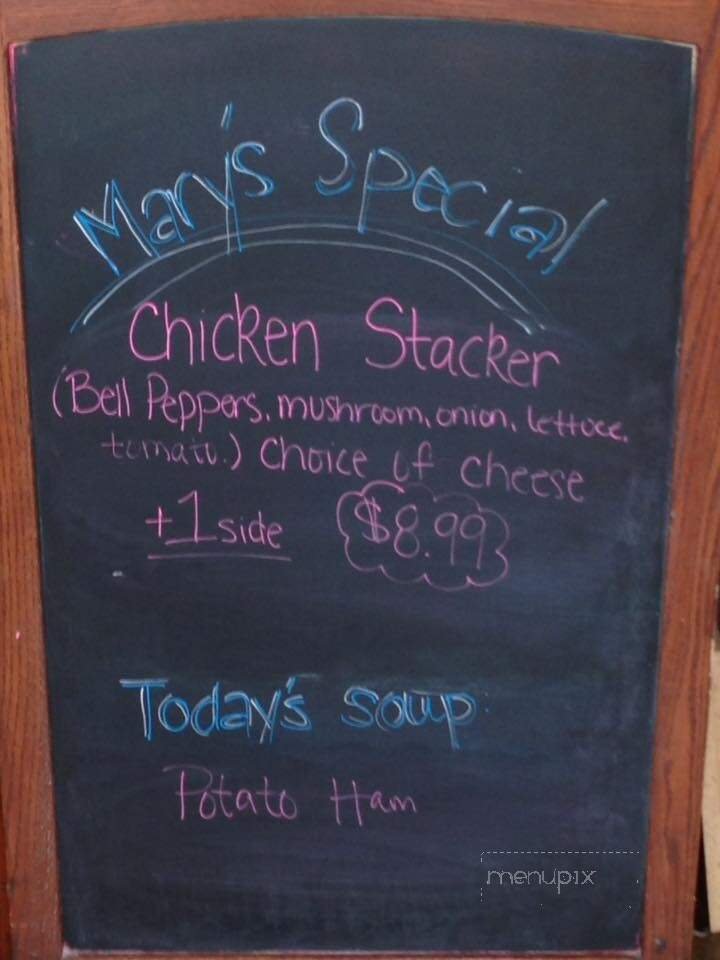 Mary's Special
Chicken Stacker
(Bell Peppers, mushroom, onion, lettuce,
tomato.) Choice of cheese
+1 side $8.99
Today's soup:
Potato Ham
menupix